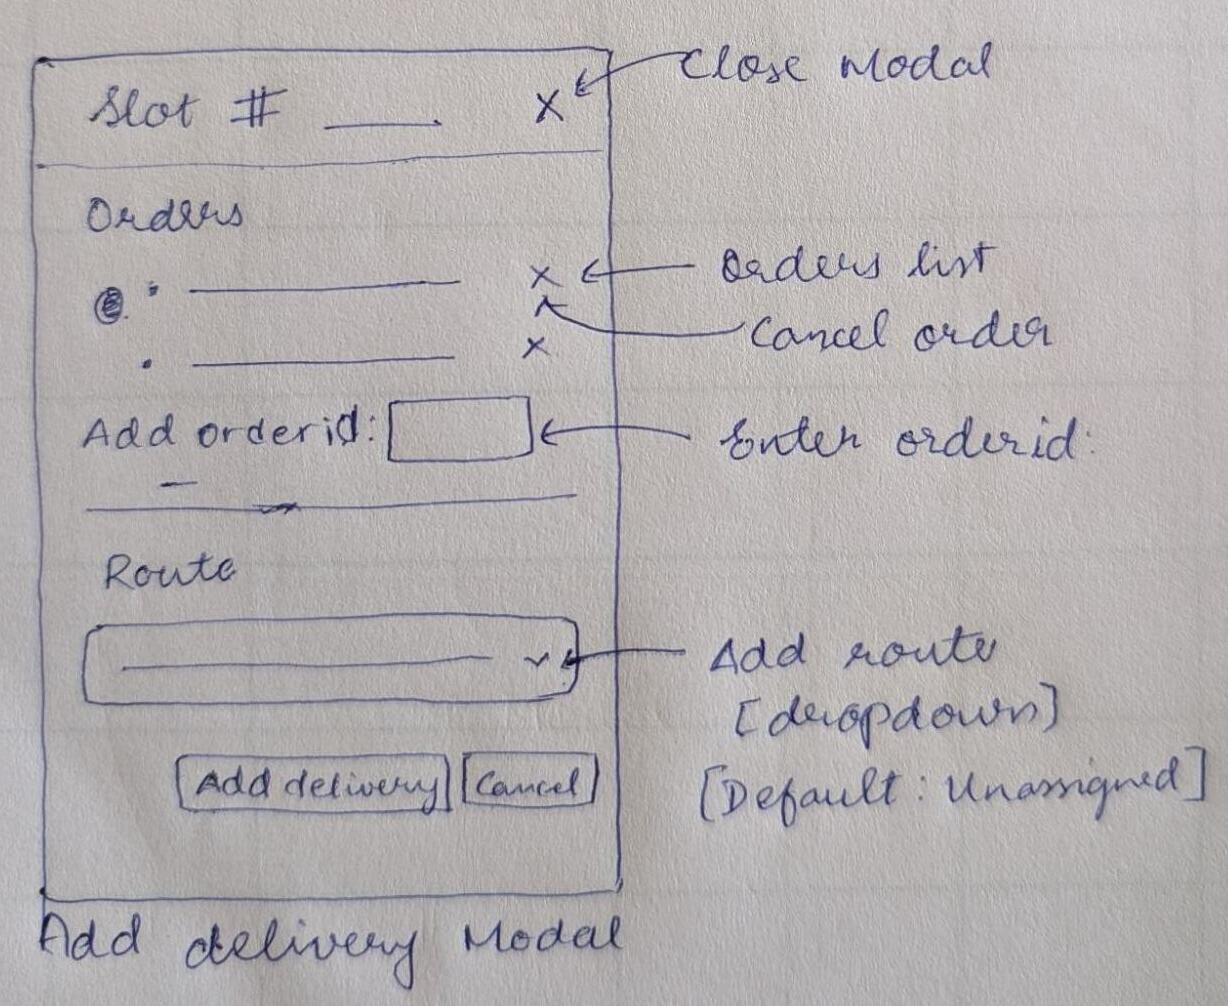 Slot # ____ X
Close Modal
Orders
X
Orders list
Cancel order
X
Add orderid:
Enter orderid:
Route
Add route
[dropdown]
[Default: Unassigned]
Add delivery Cancel
Add delivery Modal